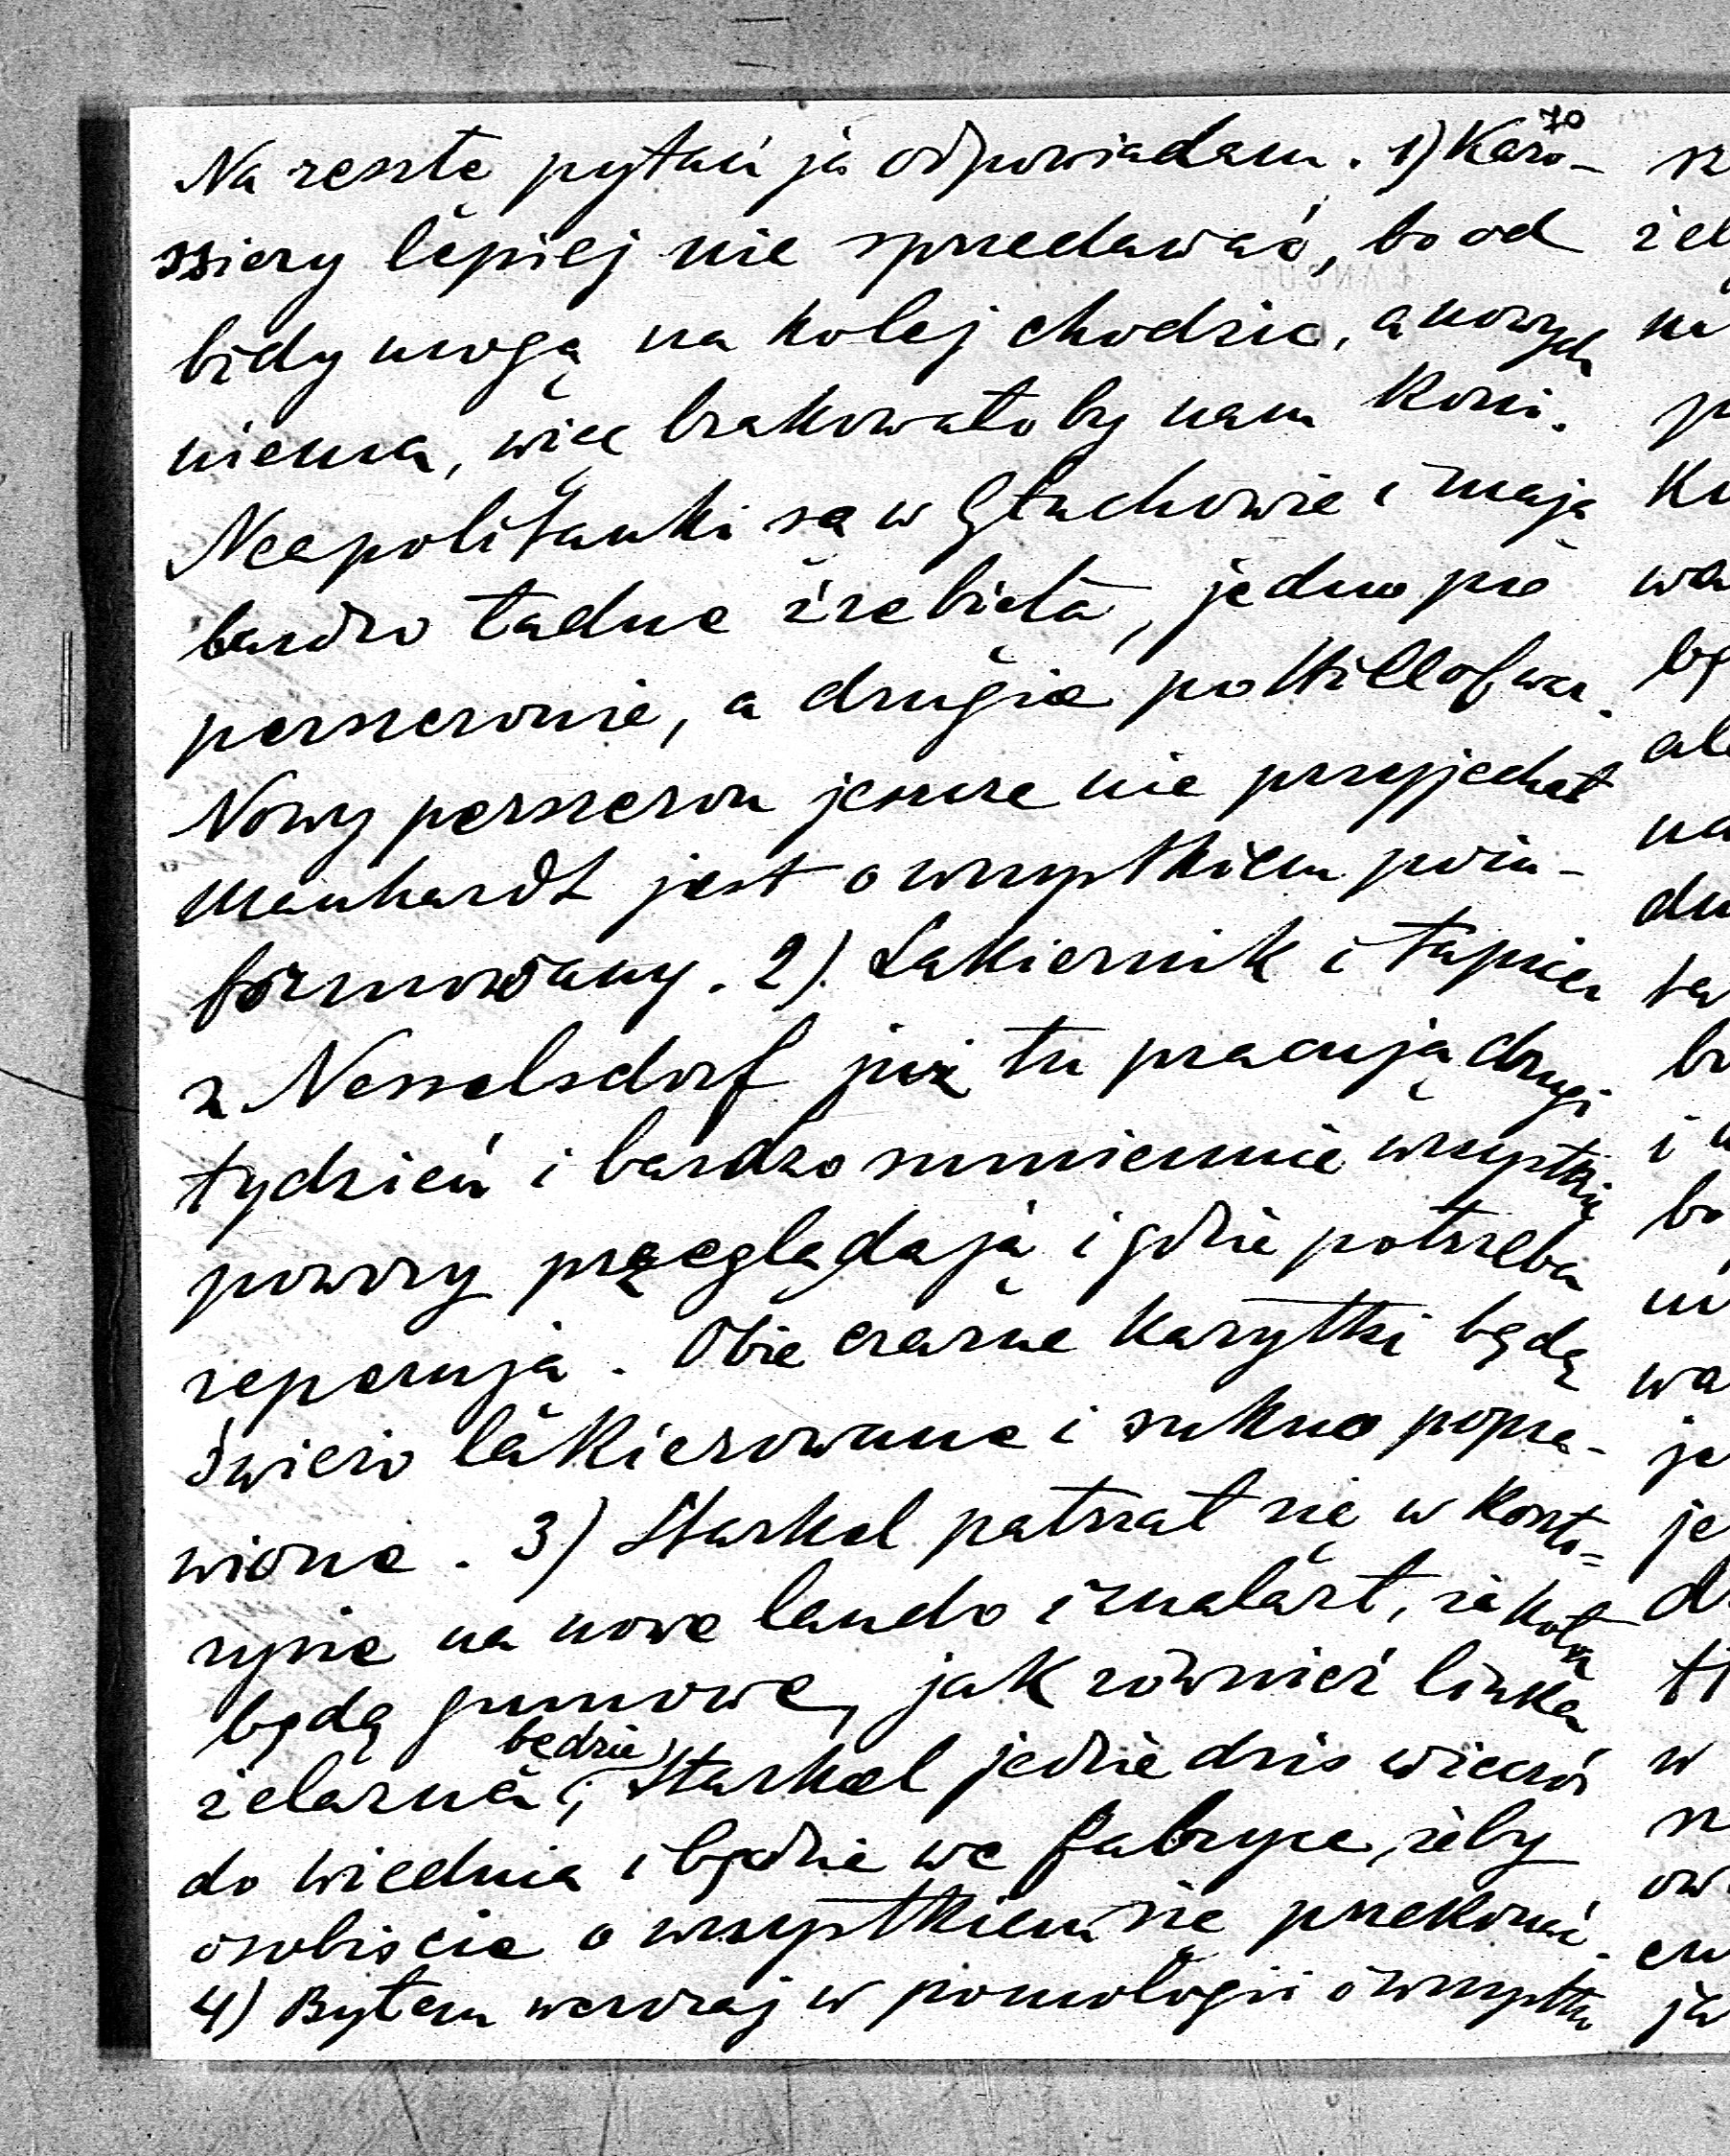 70
Na resztę pytań ja odpowiadam. 1) Karo-
ssiery lepiej nie sprzedawać, bo od
bidy mogą na kolej chodzić, a nowych
niema, więc brakowałoby nam koni.
Neapolitanki są w Głuchowie i mają
bardzo ładne źrebięta, jedno po
perszeronie, a drugie po
Nowy perszeron jeszcze nie przyjechał
Manhardt jest o wszystkiem poin-
formowany. 2) Lakiernik i tapicer
z Nesselsdorf już tu pracują drugi
tydzień i bardzo sumiennie wszystkie
powozy przeglądają i gdzie potrzeba
reperują. Obie czarne karytki będą
świeżo lakierowane i sukno popra-
wione. 3) Starkel patrzał się w kosto-
rysie na nowe lando i znalazł, że koła
będą gumowe, jak również linka
żelazna będzie; Starkel jedzie dziś wieczór
do Wiednia i będzie we fabryce, żeby
osobiście o wszystkiem się przekonać.
4) Byłem wczoraj w pomologii o wszystko